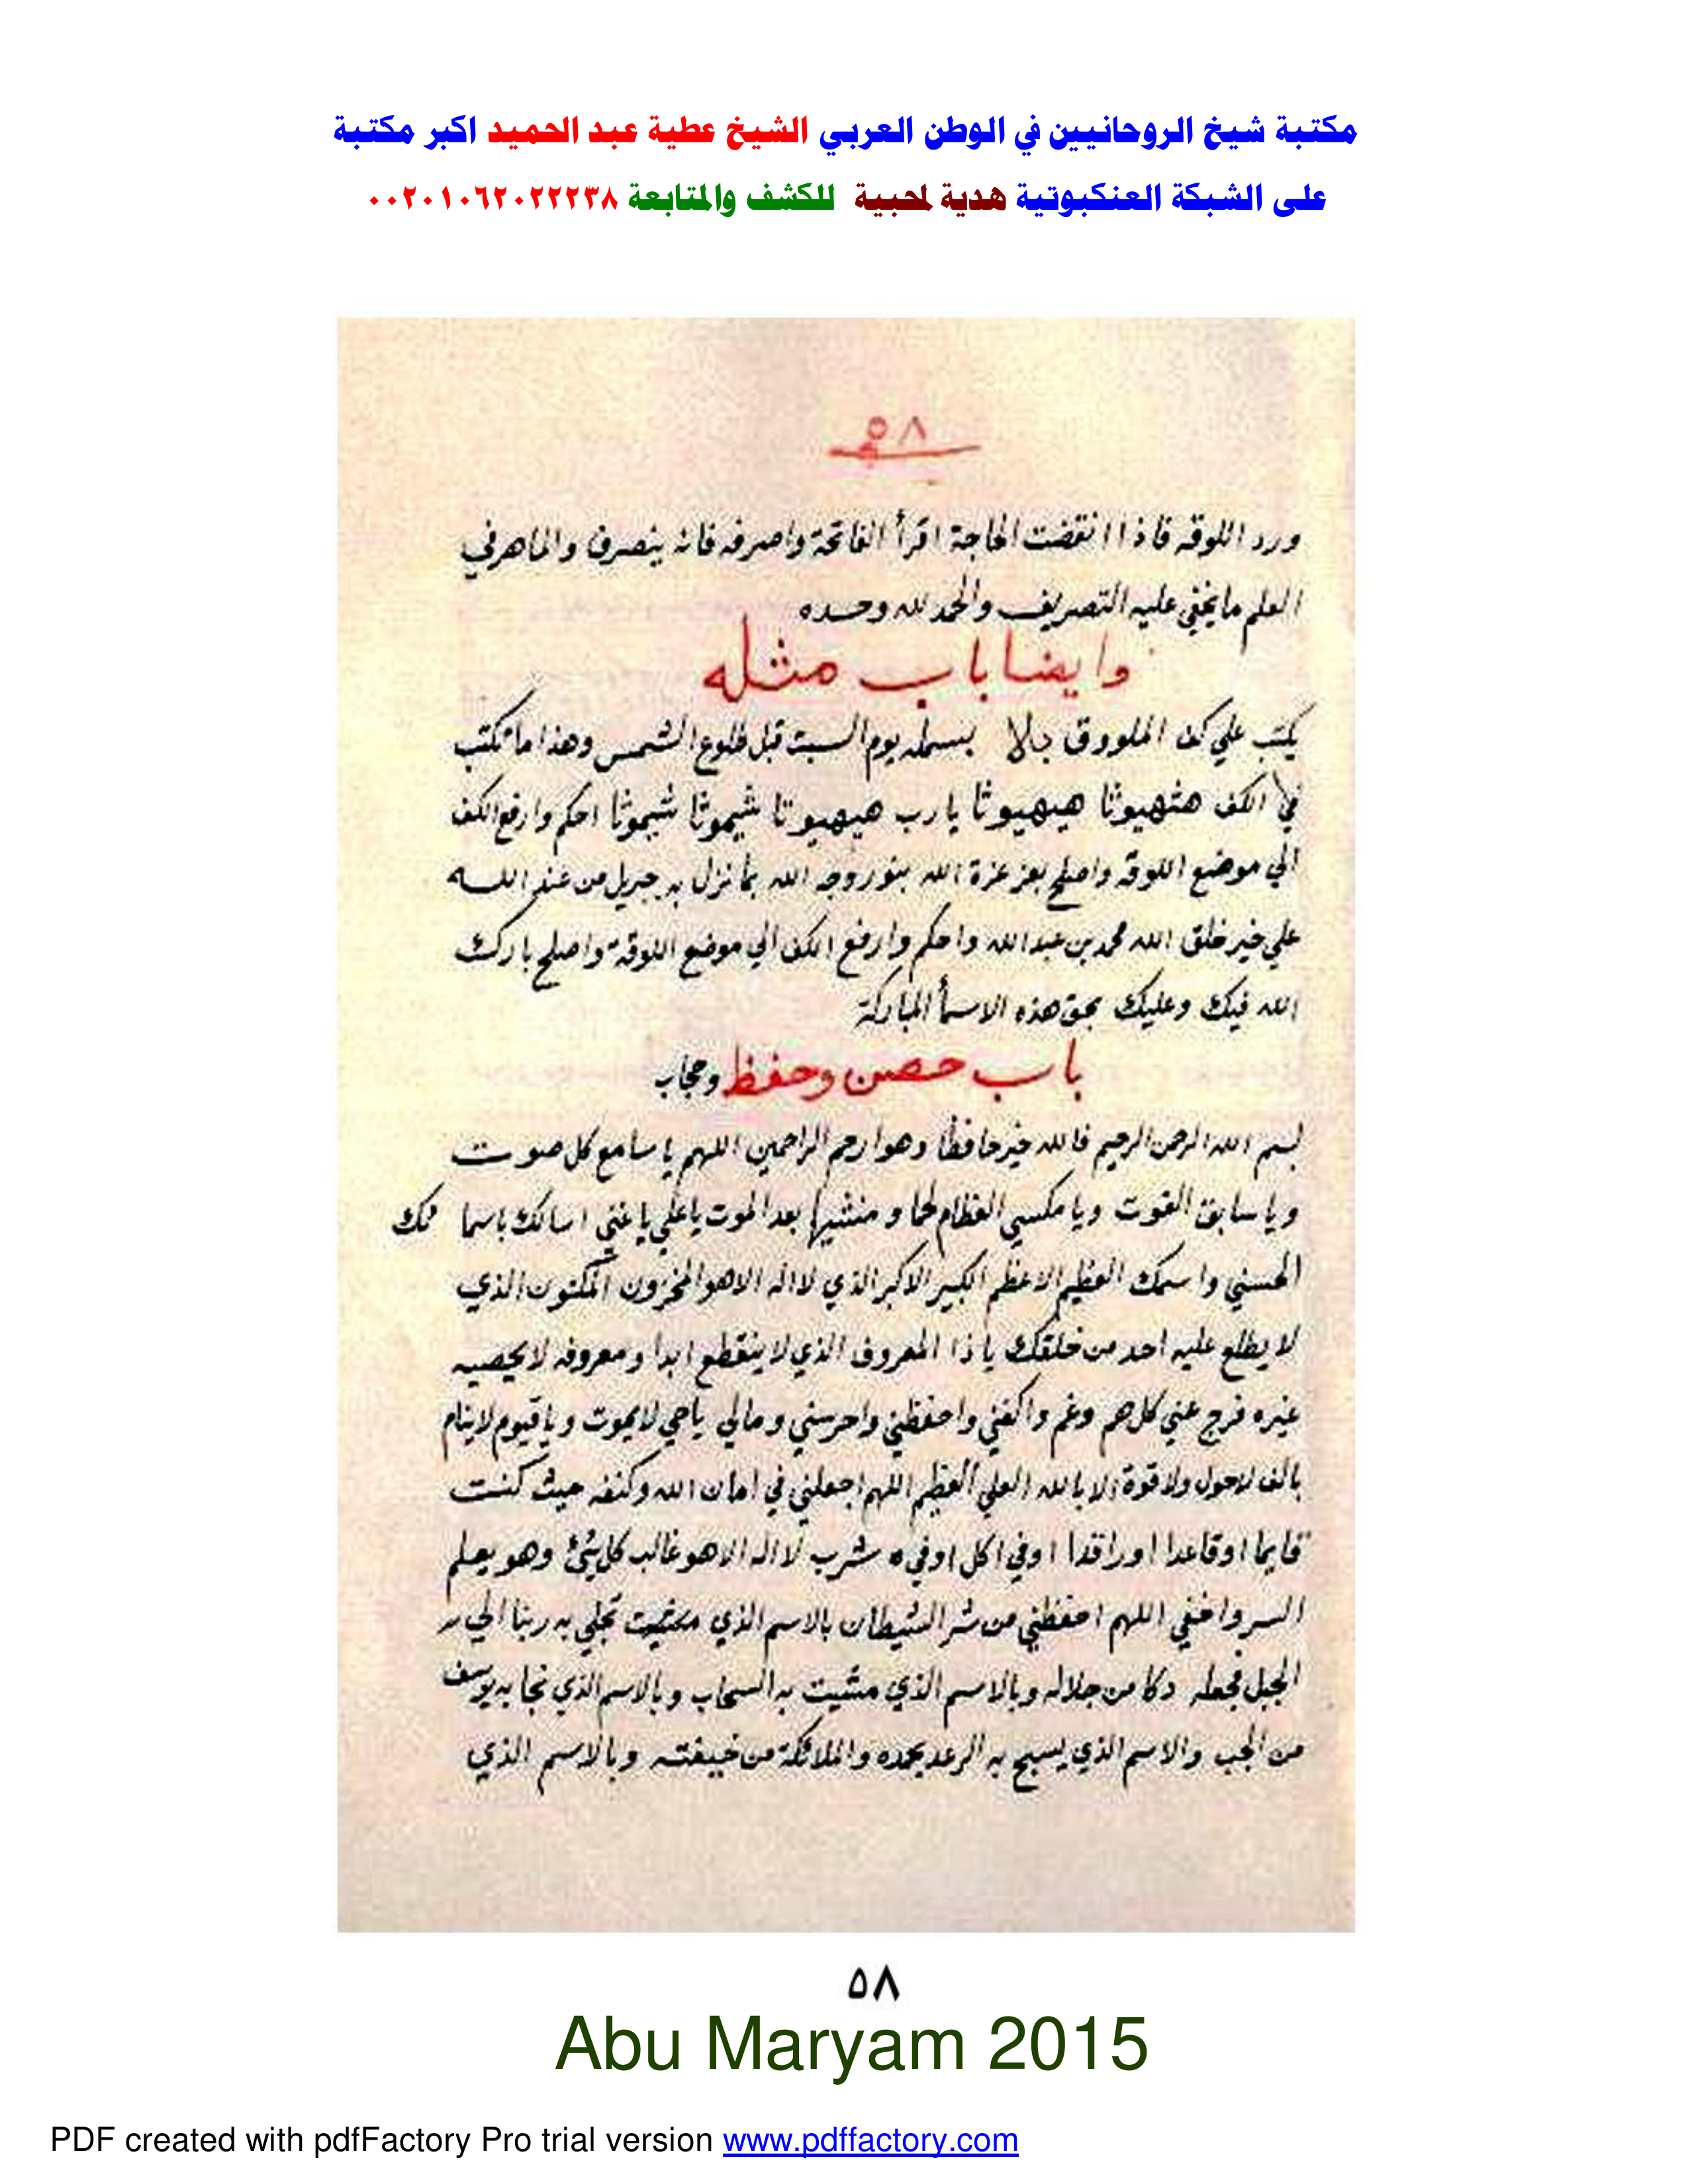 مكتبة شيخ الروحانيين في الوطن العربي الشيخ عطية عبد الحميد اكبر مكتبة
على الشبكة العنكبوتية هدية لمحبية للكشف والمتابعة ٠٠٢٠١٠٦٢٠٢٢٢٣٨
٥٨
ورد اللوقه فاذا انقضت الحاجة اقرأ الفاتحة واصرفه فانه ينصرف والماهر في
العلم ما يخفي عليه التصريف والحمد لله وحده
وايضا باب مثله
يكتب علي كف الملووق بلا بسمله يوم السبت قبل طلوع الشمس وهذا ما تكتب
في الكف هثهيوثا هيهيوثا يا رب هيهيوتا شيموثا شيموثا احكم وارفع الكف
الي موضع اللوقه واصلح بعز عزة الله بنور وجه الله بما نزل به جبريل من عند اللـه
علي خير خلق الله محمد بن عبد الله واحكم وارفع الكف الي موضع اللوقة واصلح بارك
الله فيك وعليك بحق هذه الاسمأ المباركة
باب حصن وحفظ وحجاب
بسم الله الرحمن الرحيم فالله خير حافظا وهو ارحم الراحمين اللهم يا سامع كل صوت
ويا سابق الفوت ويا مكسي العظام لحما و منشيها بعد الموت يا علي يا غني اسالك باسما ئك
الحسني واسمك العظيم الاعظم الكبير الاكبر الذي لا اله الا هو المخزون المكنون الذي
لا يطلع عليه احد من خلقك يا ذا المعروف الذي لا ينقطع ابدا و معروفه لا يحصيه
غيره فرج عني كل هم وغم واكفني واحفظني واحرسني ومالي يا حي لا يموت ويا قيوم لا ينام
بالف لا حول ولا قوة الا بالله العلي العظيم اللهم اجعلني في امان الله وكنفه حيث كنت
قايما او قاعدا او راقدا او في اكل او في شرب لا اله الا هو غالب كل شئ وهو يعلم
السر واخفي اللهم احفظني من شر الشيطان بالاسم الذي تجلي به ربنا الي
الجبل فجعله دكا من جلاله وبالاسم الذي مشيت به السحاب وبالاسم الذي نجا به يوسف
من الجب والاسم الذي يسبح به الرعد بحمده والملائكة من خيفته وبالاسم الذي
٥٨
Abu Maryam 2015
PDF created with pdfFactory Pro trial version www.pdffactory.com